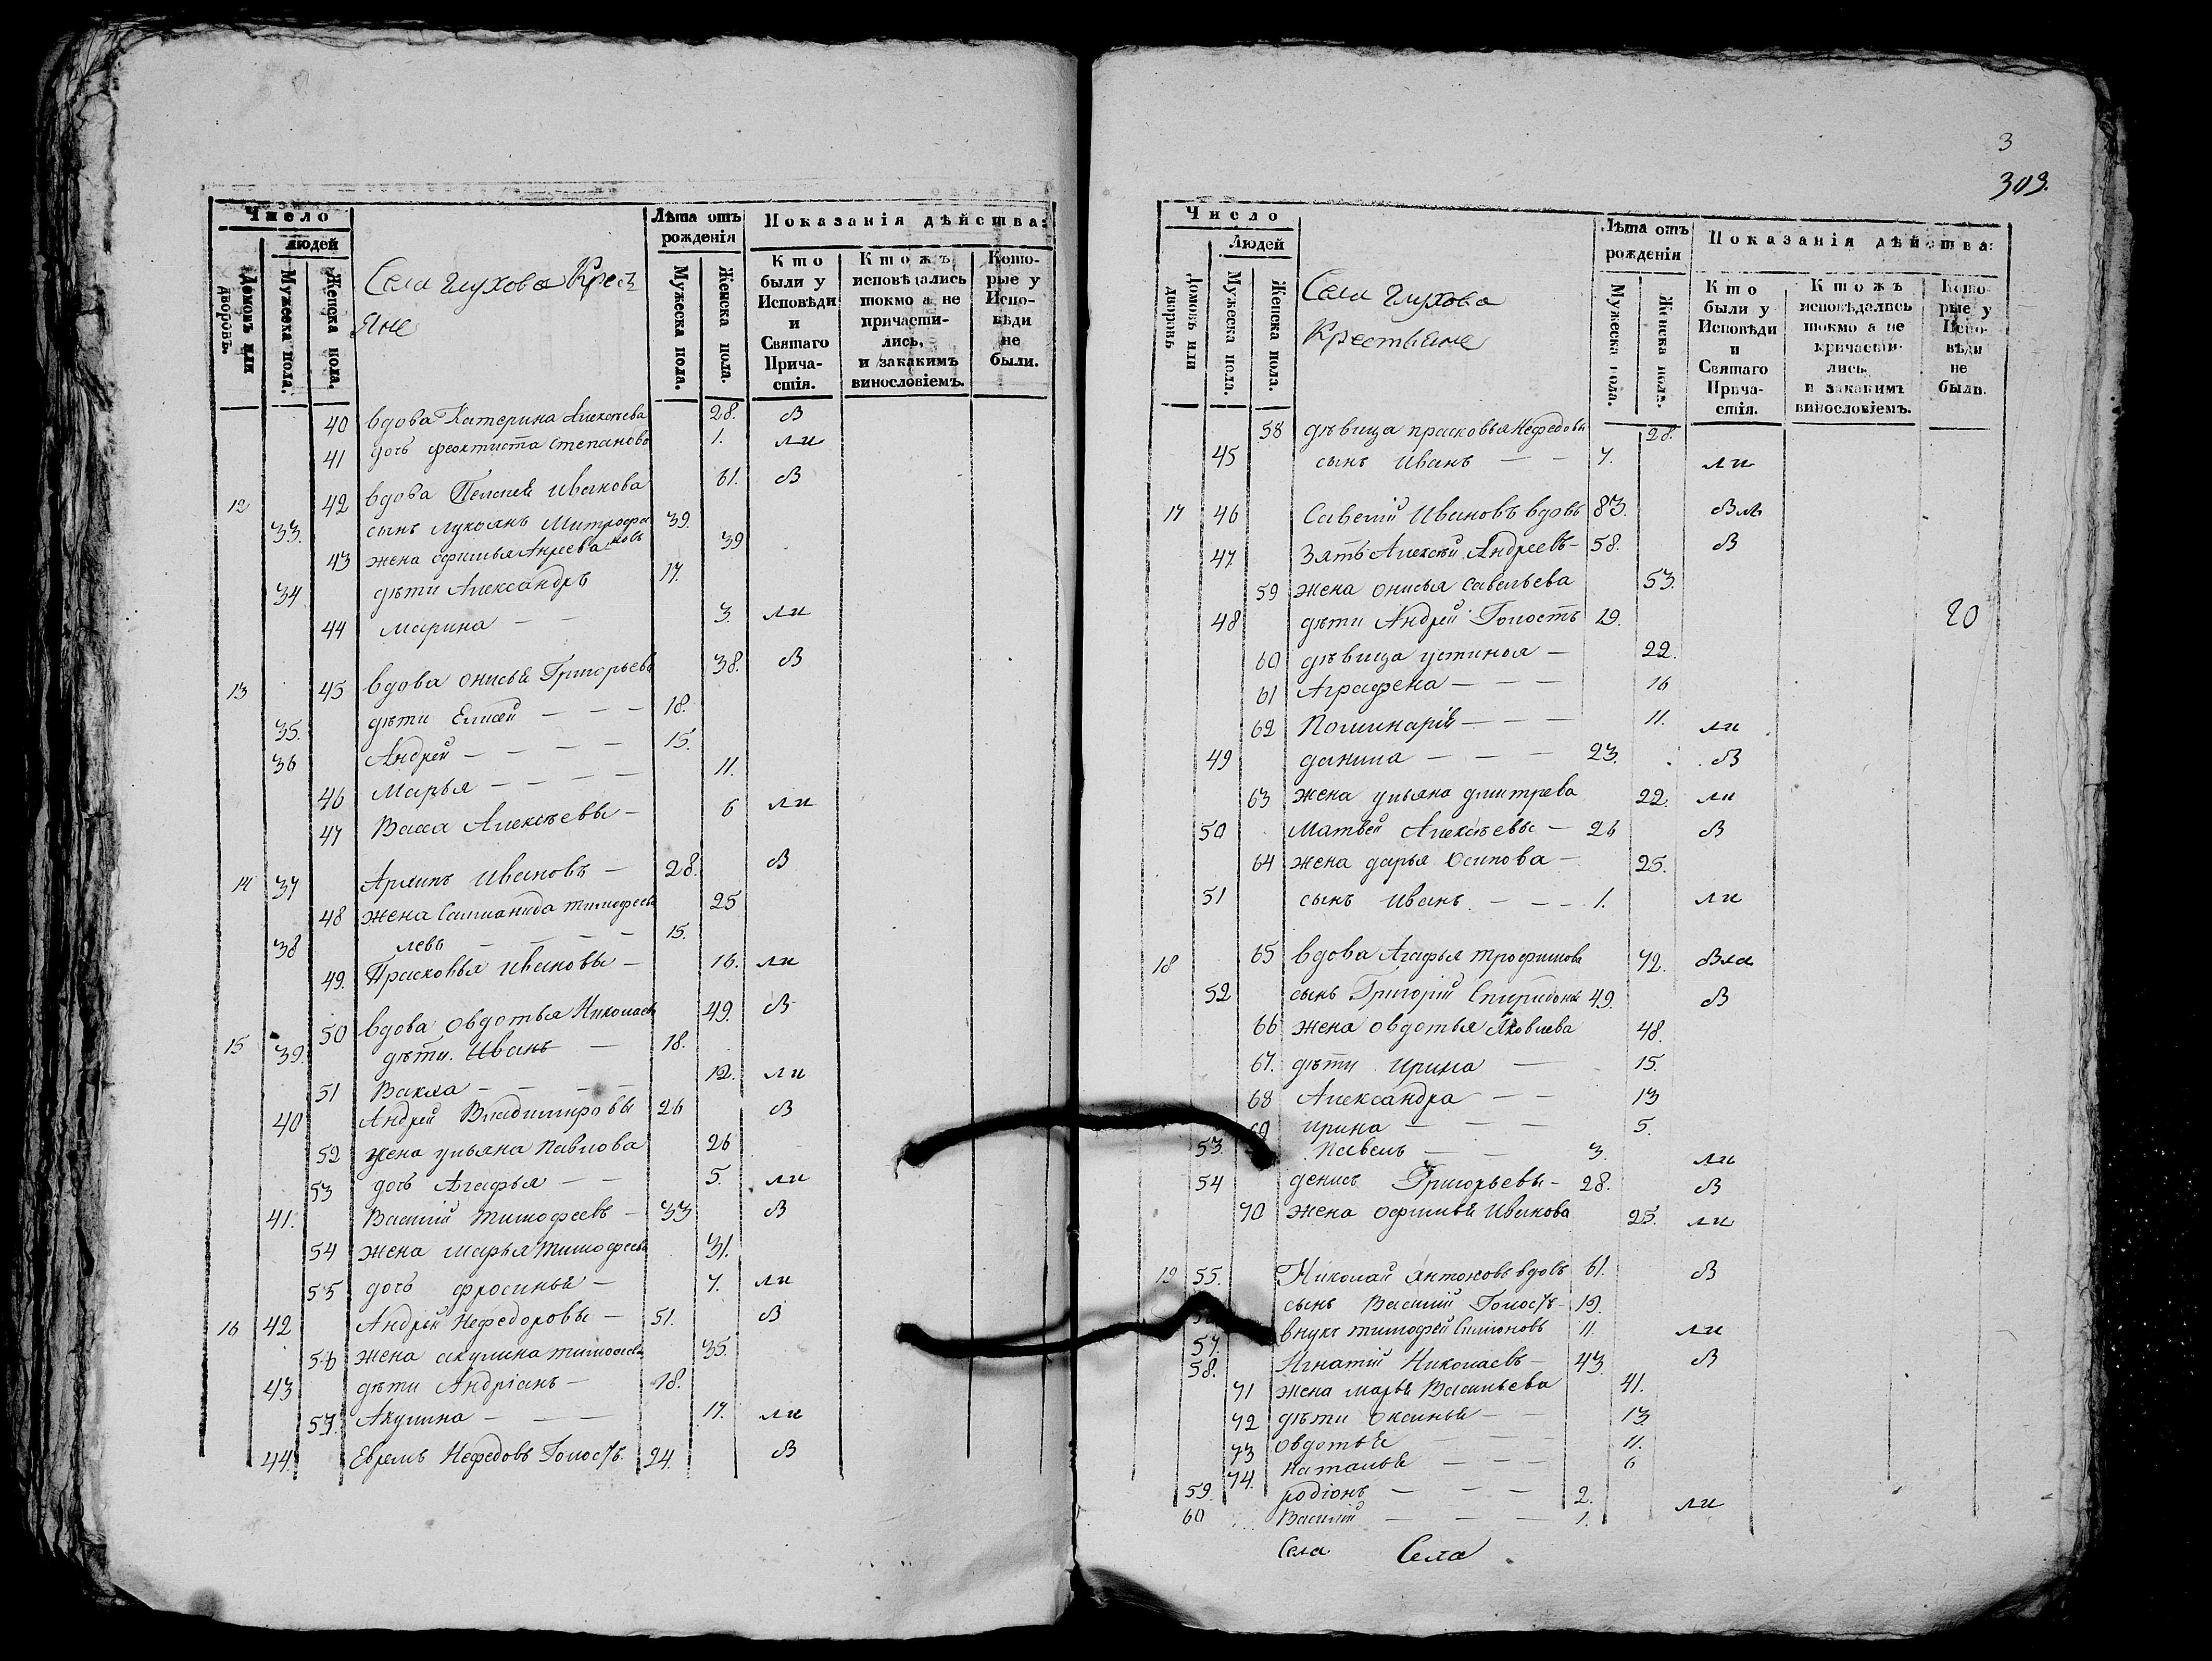 Число
Людей
Домовъ или дворовъ.
Мужеска пола.
Женска пола.
Села Глухова Крест
яне
Лѣта отъ рожденія
Мужеска пола.
Женска пола.
Показанія дѣйства:
Кто были у Исповѣди и Святаго Причастія.
Ктожъ исповѣдались токмо а не причастились, и закакимъ винословіемъ.
Которые у Исповѣди не были.
40 вдова Катерина Алексѣева 28. В
41 дочь феоктиста степанова 1. ли
12 42 вдова Пелагея иванова 61. В
33. сынъ лукоянъ Митрофановъ 39.
43 жена офимья Андреева 39
34 дѣти Александръ 17.
44 марина — — 3. ли
13 45 вдова онисья Григорьева 38. В
35. дѣти Елисей — — — 18.
36 Андрей — — — — 15.
46 Марья — — — — 11.
47 Васса Алексѣевы — 6 ли
14 37 Архипъ Ивановъ — 28. В
48 жена Саломанида тимофеева 25
38 левъ — — — — 15.
49. Прасковья ивановы — 16. ли
50 вдова овдотья Николаева 49. В
15 39. дѣти. Иванъ — 18.
51 Вакха — — — — 12. ли
40 Андрей Владимировы 26 В
52 жена ульяна павлова 26
53 дочь Агафья — — 5. ли
41. Василій тимофеевъ — 33 В
54 жена марья тимофеева 31.
55 дочь фросинья — 7. ли
16 42 Андрей Нефедоровы — 51. В
56 жена акулина 35.
43 дѣти Андріанъ — 18.
57. Акулина — — — 17. ли
44. Евремъ Нефедовъ Голостъ. 24. В
3
309.
Число
Людей
Домовъ или дворовъ
Мужеска пола.
Женска пола.
Села Глухова
Крестьяне
Лѣта отъ рожденія
Мужеска пола.
Женска пола.
Показанія дѣйства:
Кто были у Исповѣди и Святаго Причастія.
Ктожъ исповѣдались токмо а не причастились. и закакимъ винословіемъ.
Которые у Исповѣди не были.
58 дѣвица прасковья Нефедова 28.
45 сынъ Иванъ — — 7. ли
17 46 Савелій Ивановъ вдовъ 83. Вли
47. Зять Алексѣй Андреевъ — 58. В
59 жена онисья савельева 53.
48 дѣти Андрей Голостъ 29. 20
60 дѣвица устинья — 22.
61 Аграфена — — — 16
62 Полинарія — — — 11. ли
49 данила — — — 23. В
63 жена ульяна дмитрева 22. ли
50 Матвей Алексѣевы — 26 В
64 жена дарья Осипова — 25.
51 сынъ иванъ — — — 1. ли
18 65 вдова Агафья трофимова 72. Вли
52 сынъ Григорій Спиридоновъ 49. В
66 жена овдотья Яковлева 48.
67. дѣти Ирина — 15.
68 Александра — — 13
69 ирина — — — 5.
53. Павелъ — — 3. ли
54 денисъ Григорьевы — 28. В
70 жена офимья Иванова 25. ли
19 55. Николай Антоновъ вдовъ 61. В
сынъ Василий Голостъ — 19.
57. внукъ тимофей Симіоновъ 11. ли
58. Игнатій Николаевъ — 43. В
71 жена марья Васильева 41.
72 дѣти Оксинья — — 13.
73 овдотья — — — 11.
74. наталья — — — 6
59. родіонъ — — — 2. ли
60 Василій — — — 1.
Села Села